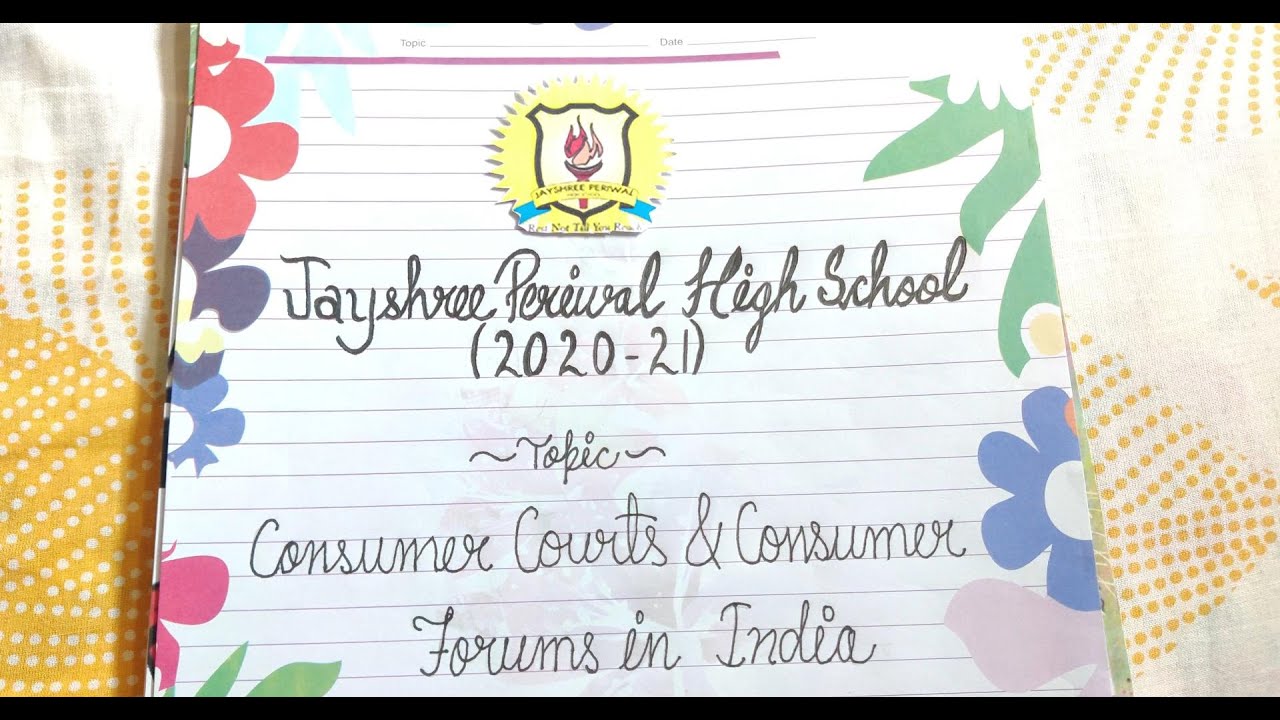 Topic Date
JAYSHREE PERIWAL
Rest Not Till You Reach
Jayshree Periwal High School
(2020-21)
~Topic~
Consumer Courts & Consumer
Forums in India